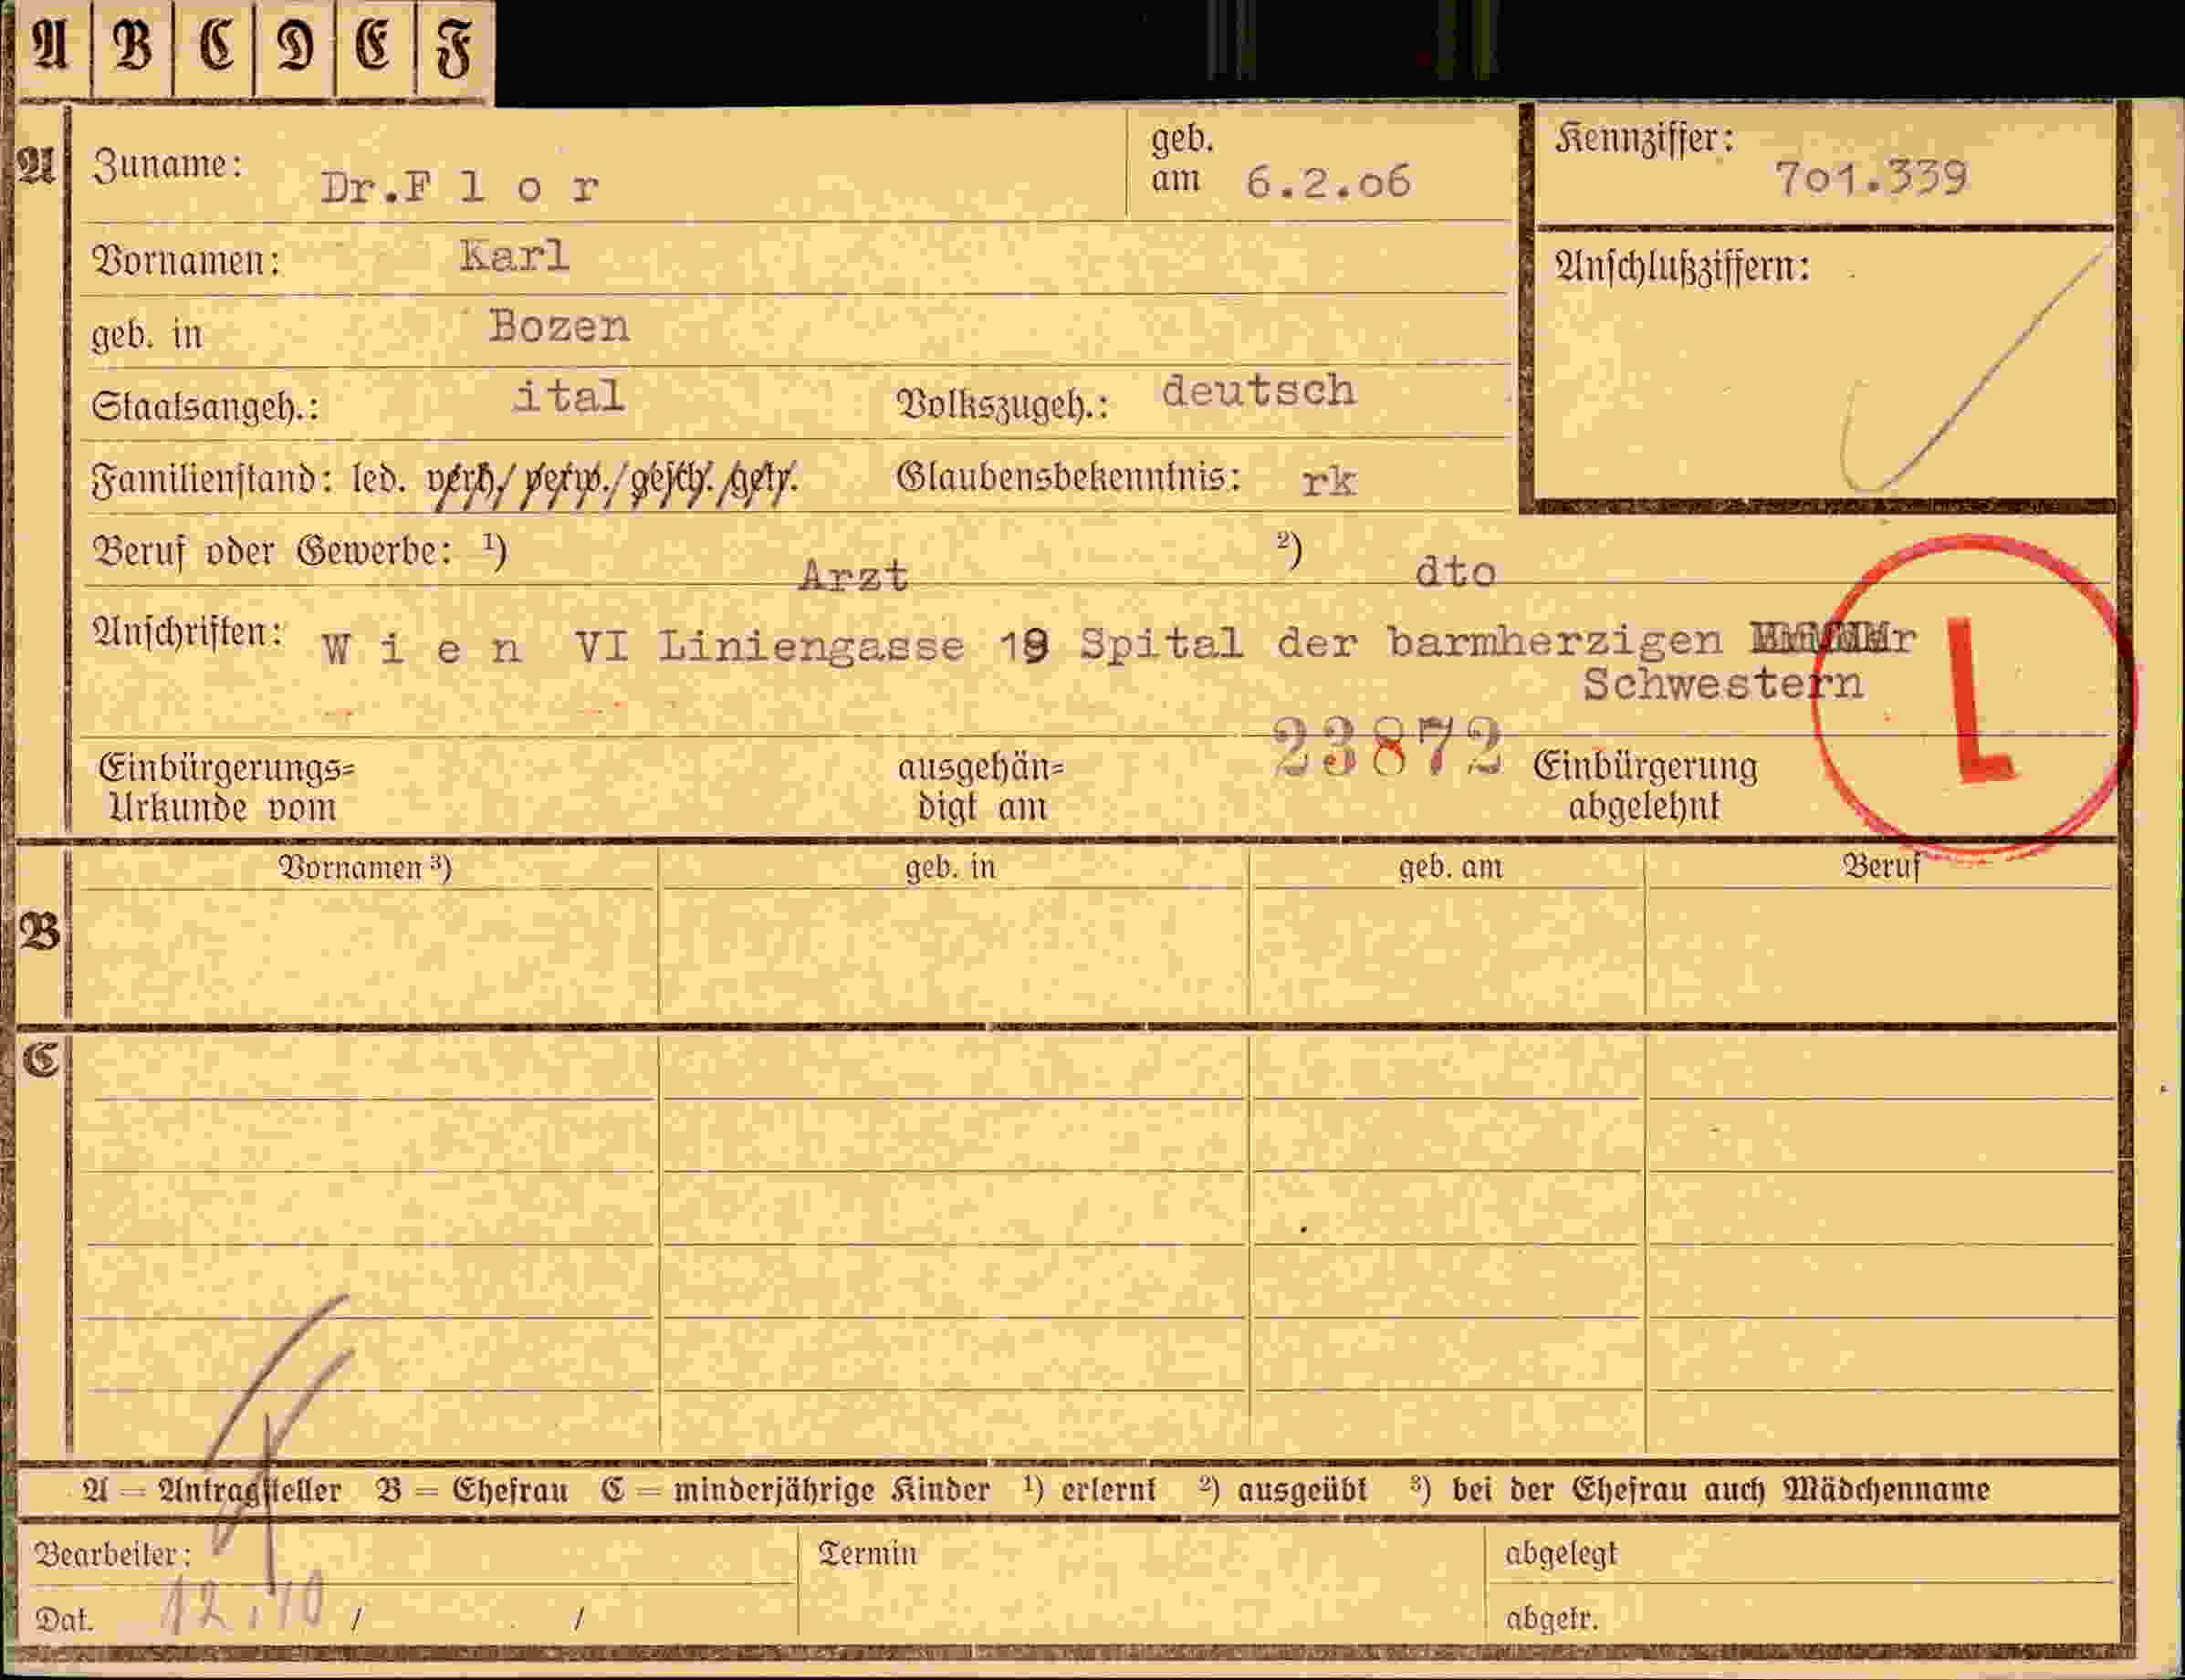 A B C D E F
A Zuname: Dr.F l o r geb. am 6.2.06 Kennziffer: 701.339
Vornamen: Karl Anschlußziffern:
geb. in Bozen
Staatsangeh.: ital Volkszugeh.: deutsch
Familienstand: led. verh./ verw./gesch./getr. Glaubensbekenntnis: rk
Beruf oder Gewerbe: ¹) Arzt ²) dto
Anschriften: W i e n VI Liniengasse 19 Spital der barmherzigen
Schwestern
L
23872
Einbürgerungs=
Urkunde vom
ausgehän=
digt am
Einbürgerung
abgelehnt
B Vornamen ³) geb. in geb. am Beruf
C
A = Antragsteller B = Ehefrau C = minderjährige Kinder ¹) erlernt ²) ausgeübt ³) bei der Ehefrau auch Mädchenname
Bearbeiter: Termin abgelegt
Dat. 12./10 / / abgetr.